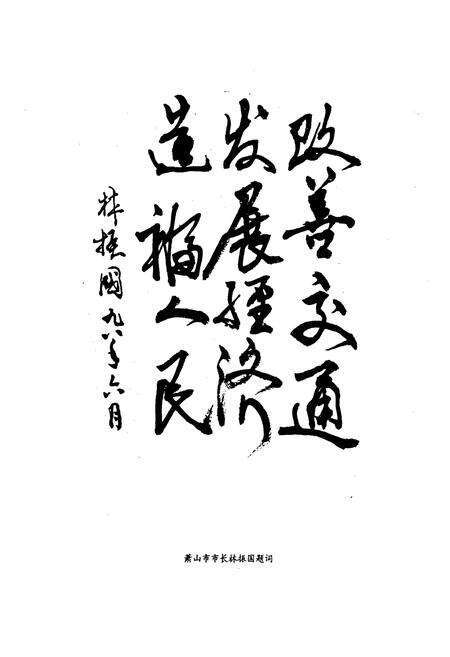 改善交通
发展经济
造福人民
林振國九八年六月
萧山市市长林振国题词